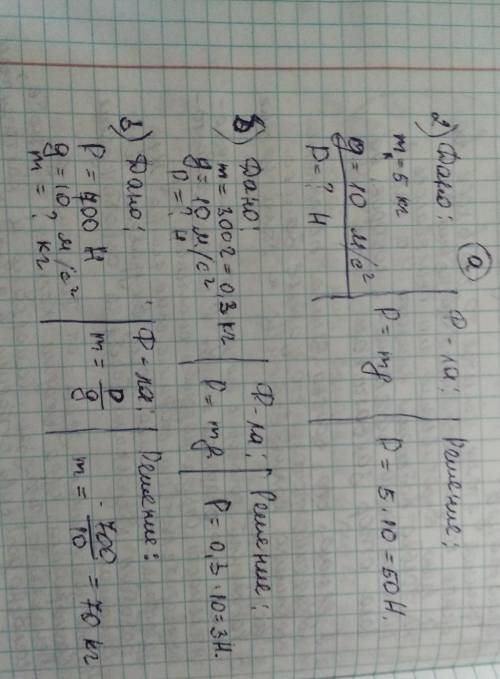 2) Дано: | Ф-ла: | Решение:
(а)
m = 5 кг | P = mg | P = 5 · 10 = 50 Н.
g = 10 м/с²
P = ? Н
б) Дано: | Ф-ла: | Решение:
m = 300г = 0,3 кг | P = mg | P = 0,3 · 10 = 3Н.
g = 10 м/с²
P = ? Н
в) Дано: | Ф-ла: | Решение:
P = 700 Н | m = P/g | m = 700/10 = 70 кг
g = 10, м/с²
m = ? кг